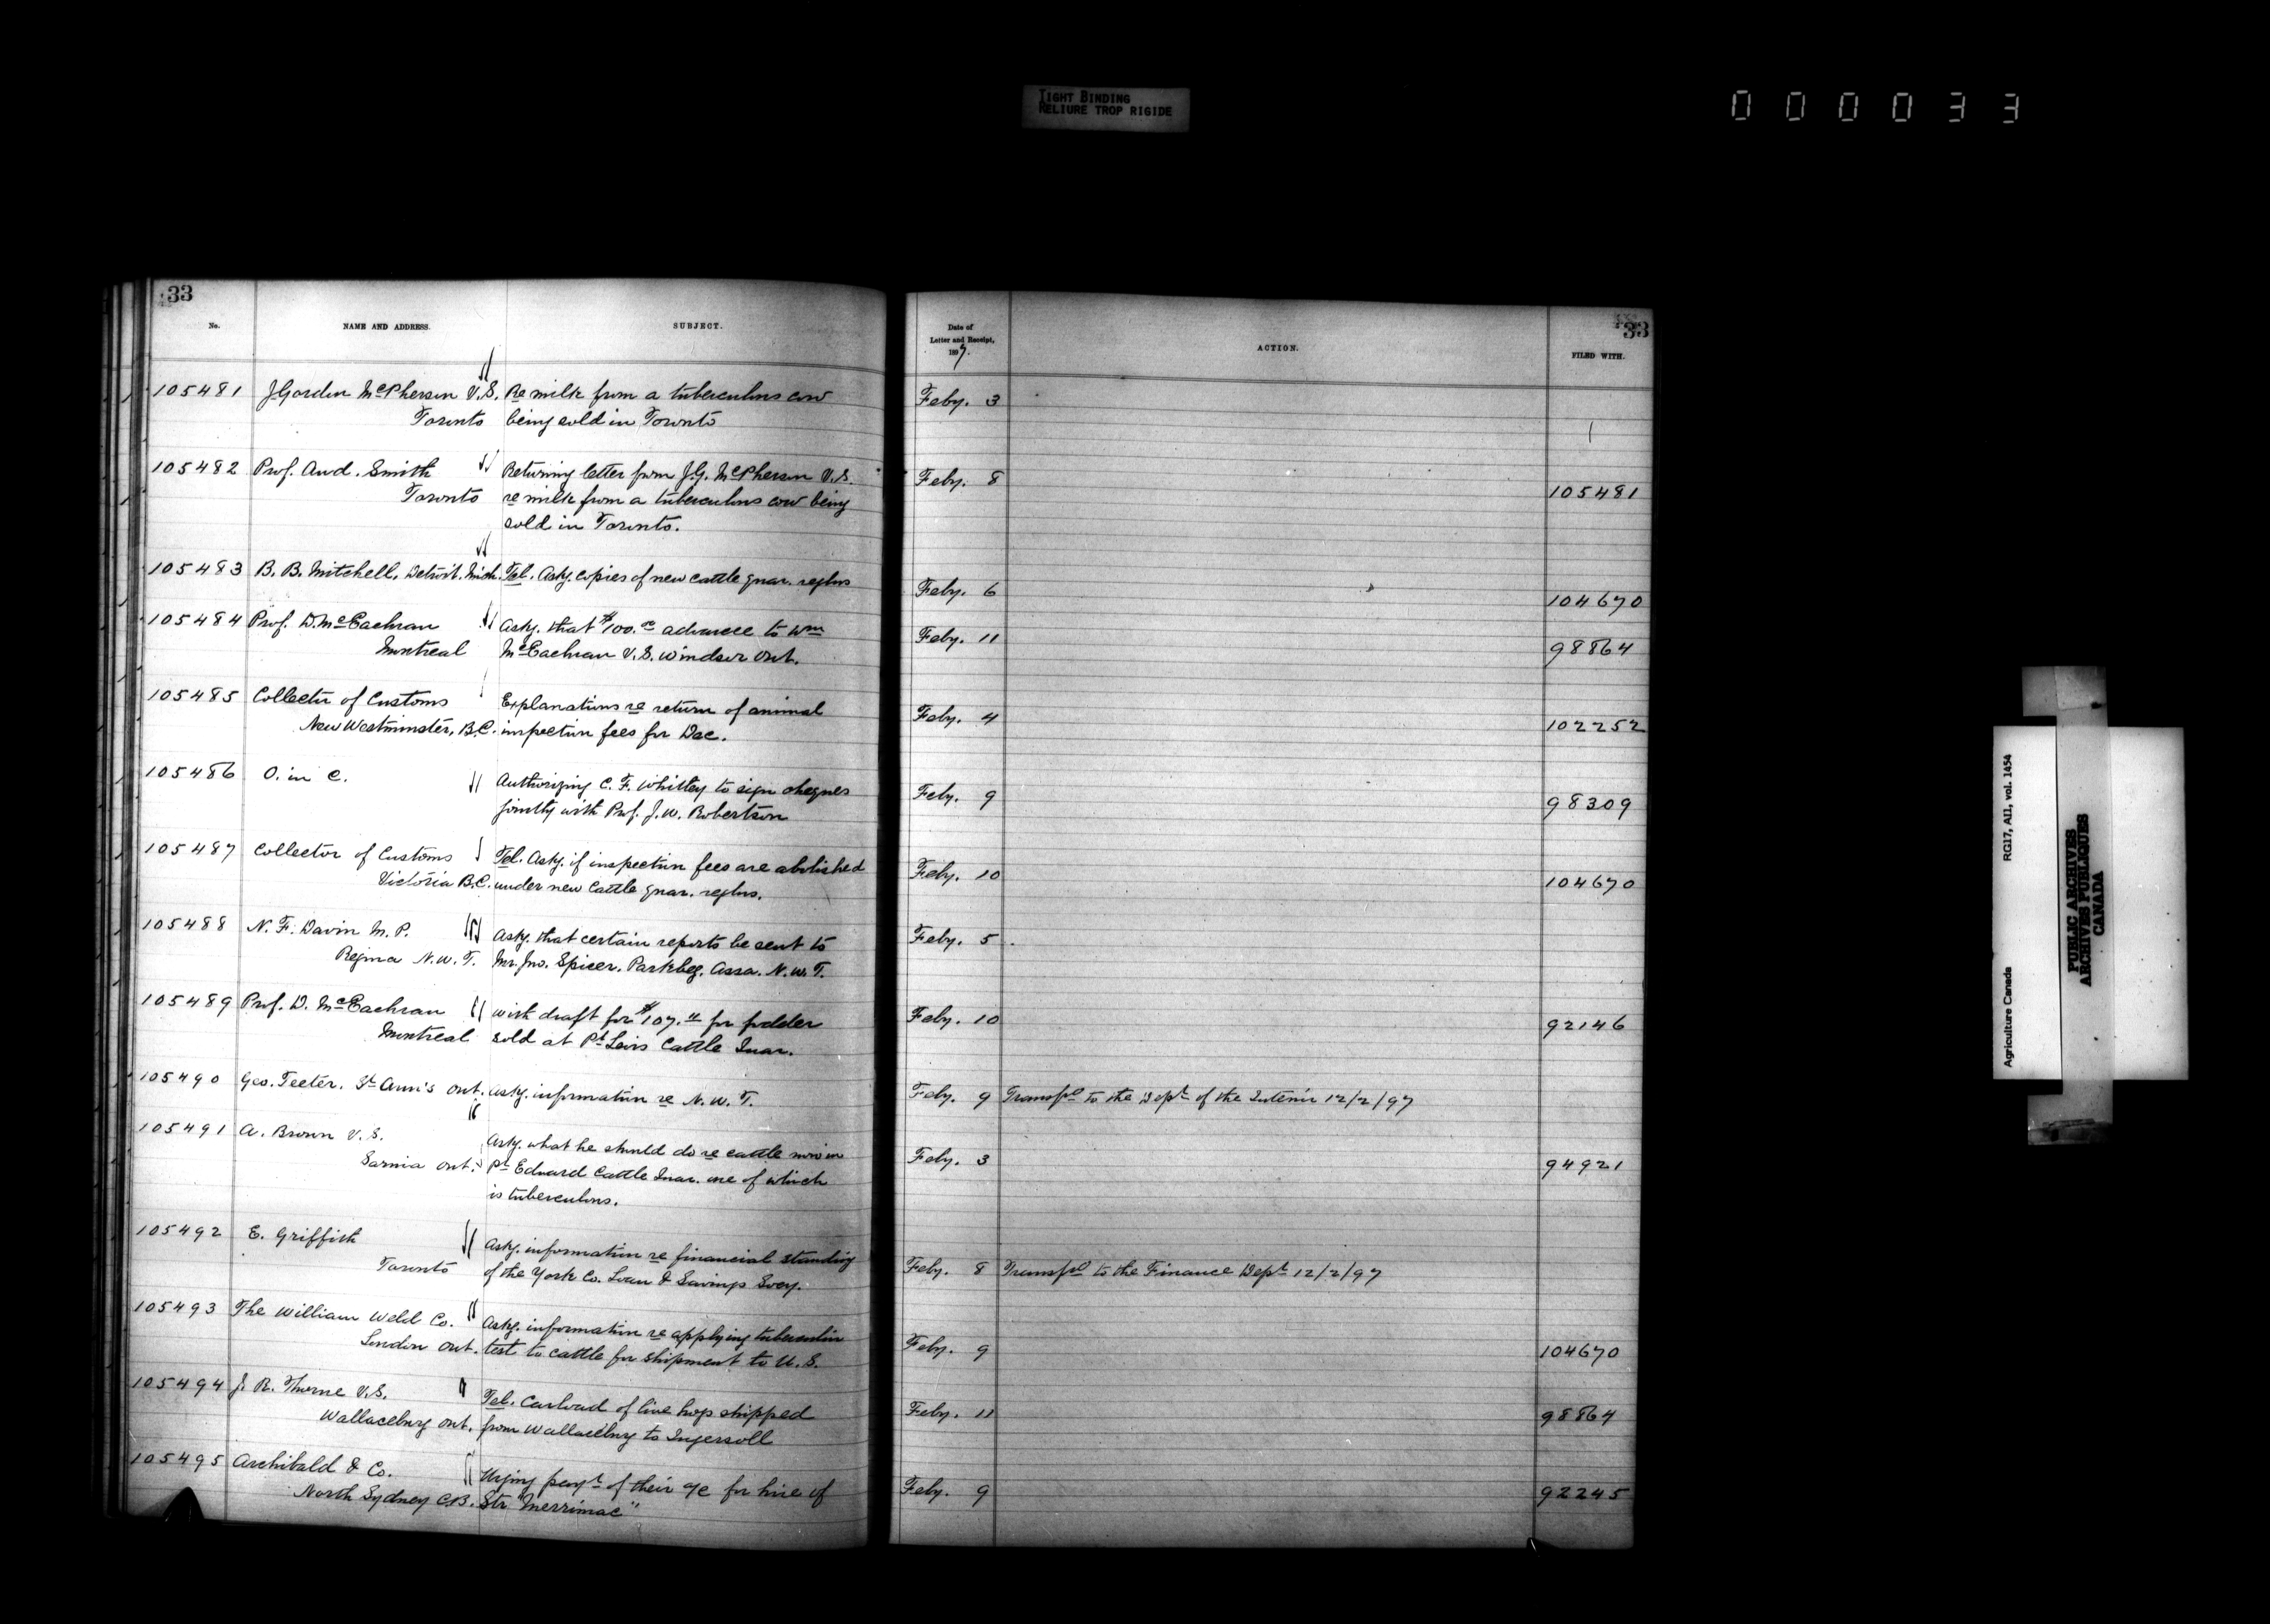 TIGHT BINDING
RELIURE TROP RIGIDE
000033
33
No.
NAME AND ADDRESS.
SUBJECT.
105481 J Gordon McPherson V.S. Re milk from a tuberculous cow
Toronto being sold in Toronto
105482 Prof. And. Smith Returning letter from J.G. McPherson V.S.
Toronto re milk from a tuberculous cow being
sold in Toronto.
105483 B. B. Mitchell, Detroit. Mich. Tel. Askg. copies of new cattle quar. reglns
105484 Prof. D. McEachran Askg. that $100.00 advance to Wm
Montreal McEachran V.S. Windsor Ont.
105485 Collector of Customs Explanations re return of animal
New Westminster, B.C. inspection fees for Dec.
105486 O. in C. Authorizing C. F. Whitley to sign cheques
jointly with Prof. J. W. Robertson
105487 Collector of Customs Tel. Askg. if inspection fees are abolished
Victoria B.C. under new Cattle quar. reglns.
105488 N. F. Davin M. P. Askg. that certain reports be sent to
Regina N.W.T. Mr. Jno. Spicer, Parkbeg. Assa. N.W.T.
105489 Prof. D. McEachran With draft for $107. for fodder
Montreal sold at Pt Levis Cattle Quar.
105490 Geo. Teeter, St Ann's Ont. Askg. information re N.W.T.
105491 A. Brown V.S. Askg. what he should do re cattle now in
Sarnia Ont. Pt Edward Cattle Quar. one of which
is tuberculous.
105492 E. Griffith Askg. information re financial standing
Toronto of the York Co. Loan & Savings Socy.
105493 The William Weld Co. Askg. information re applying tuberculin
London Ont. test to cattle for shipment to U.S.
105494 J. R. Thorne V.S. Tel. Carload of live hogs shipped
Wallaceburg Ont. from Wallaceburg to Ingersoll
105495 Archibald & Co. Urging payt of their a/c for hire of
North Sydney C.B. Str "Merrimac"
33
Date of
Letter and Receipt,
1897.
ACTION.
FILED WITH.
Feby. 3
Feby. 8 105481
Feby. 6 104670
Feby. 11 98864
Feby. 4 102252
Feby. 9 98309
Feby. 10 104670
Feby. 5
Feby. 10 92146
Feby. 9 Transfd to the Dept of the Interior 12/2/97
Feby. 3 94921
Feby. 8 Transfd to the Finance Dept 12/2/97
Feby. 9 104670
Feby. 11 98864
Feby. 9 92245
Agriculture Canada RG17, AII, vol. 1454
PUBLIC ARCHIVES
ARCHIVES PUBLIQUES
CANADA